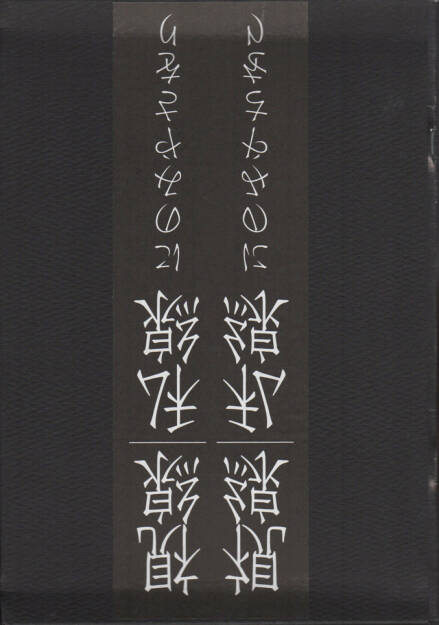 視線｜私線 にのみやさをり
視線｜私線 にのみやさをり